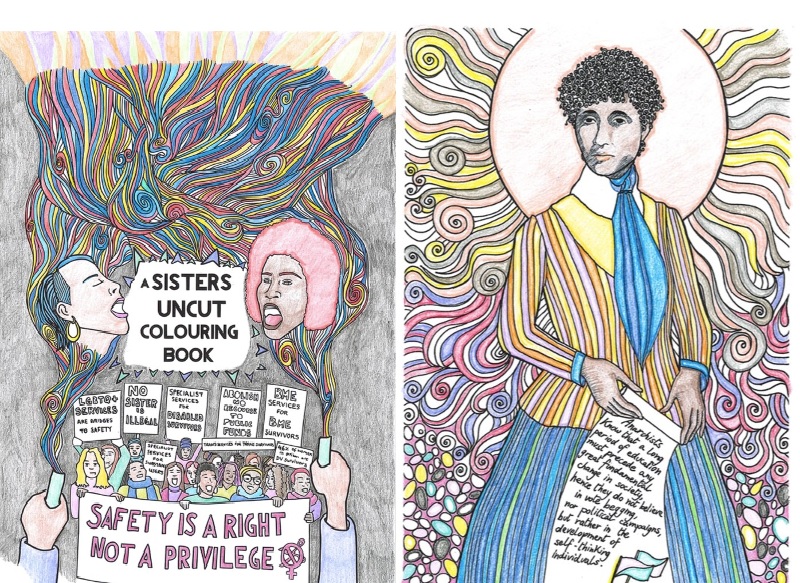 A SISTERS
UNCUT
COLOURING
BOOK
LGBTQ+
SERVICES
ARE BRIDGES
TO SAFETY
NO
SISTER
IS
ILLEGAL
SPECIALIST
SERVICES
FOR
DISABLED
SURVIVORS
ABOLISH
NO
RECOURSE
TO
PUBLIC
FUNDS
BME
SERVICES
FOR
BME
SURVIVORS
SPECIALIST
SERVICES
FOR
SURVIVORS
SAFETY IS A RIGHT
NOT A PRIVILEGE
Anarchists
know that a long
period of education
must precede any
great fundamental
change in society,
hence they do not believe
in vote begging,
nor political campaigns,
but rather in the
development of
self-thinking
individuals.